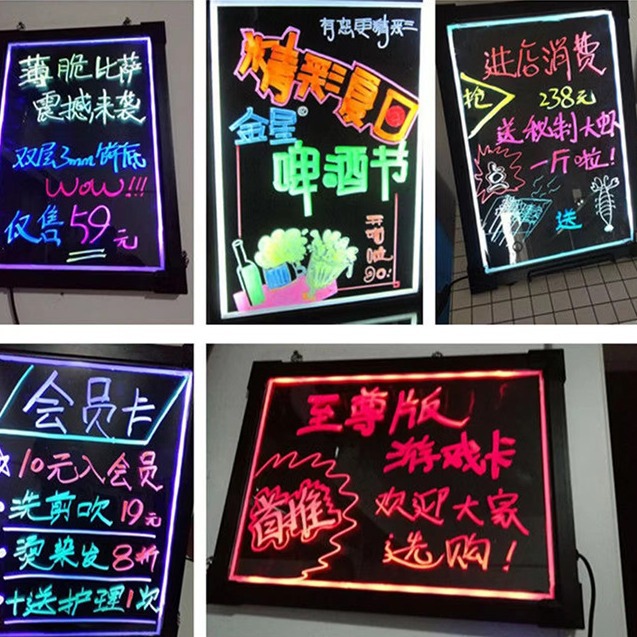 薄脆比萨
震撼来袭
双层3mm饼底
WOW!!!
仅售59元
有您更精彩
精彩夏日
金星®
啤酒节
进店消费
抢
238元
送秘制大虾
一斤啦!
送
会员卡
10元入会员
洗剪吹19元
烫染发8折
+送护理1次
至尊版
游戏卡
首推
欢迎大家
选购!